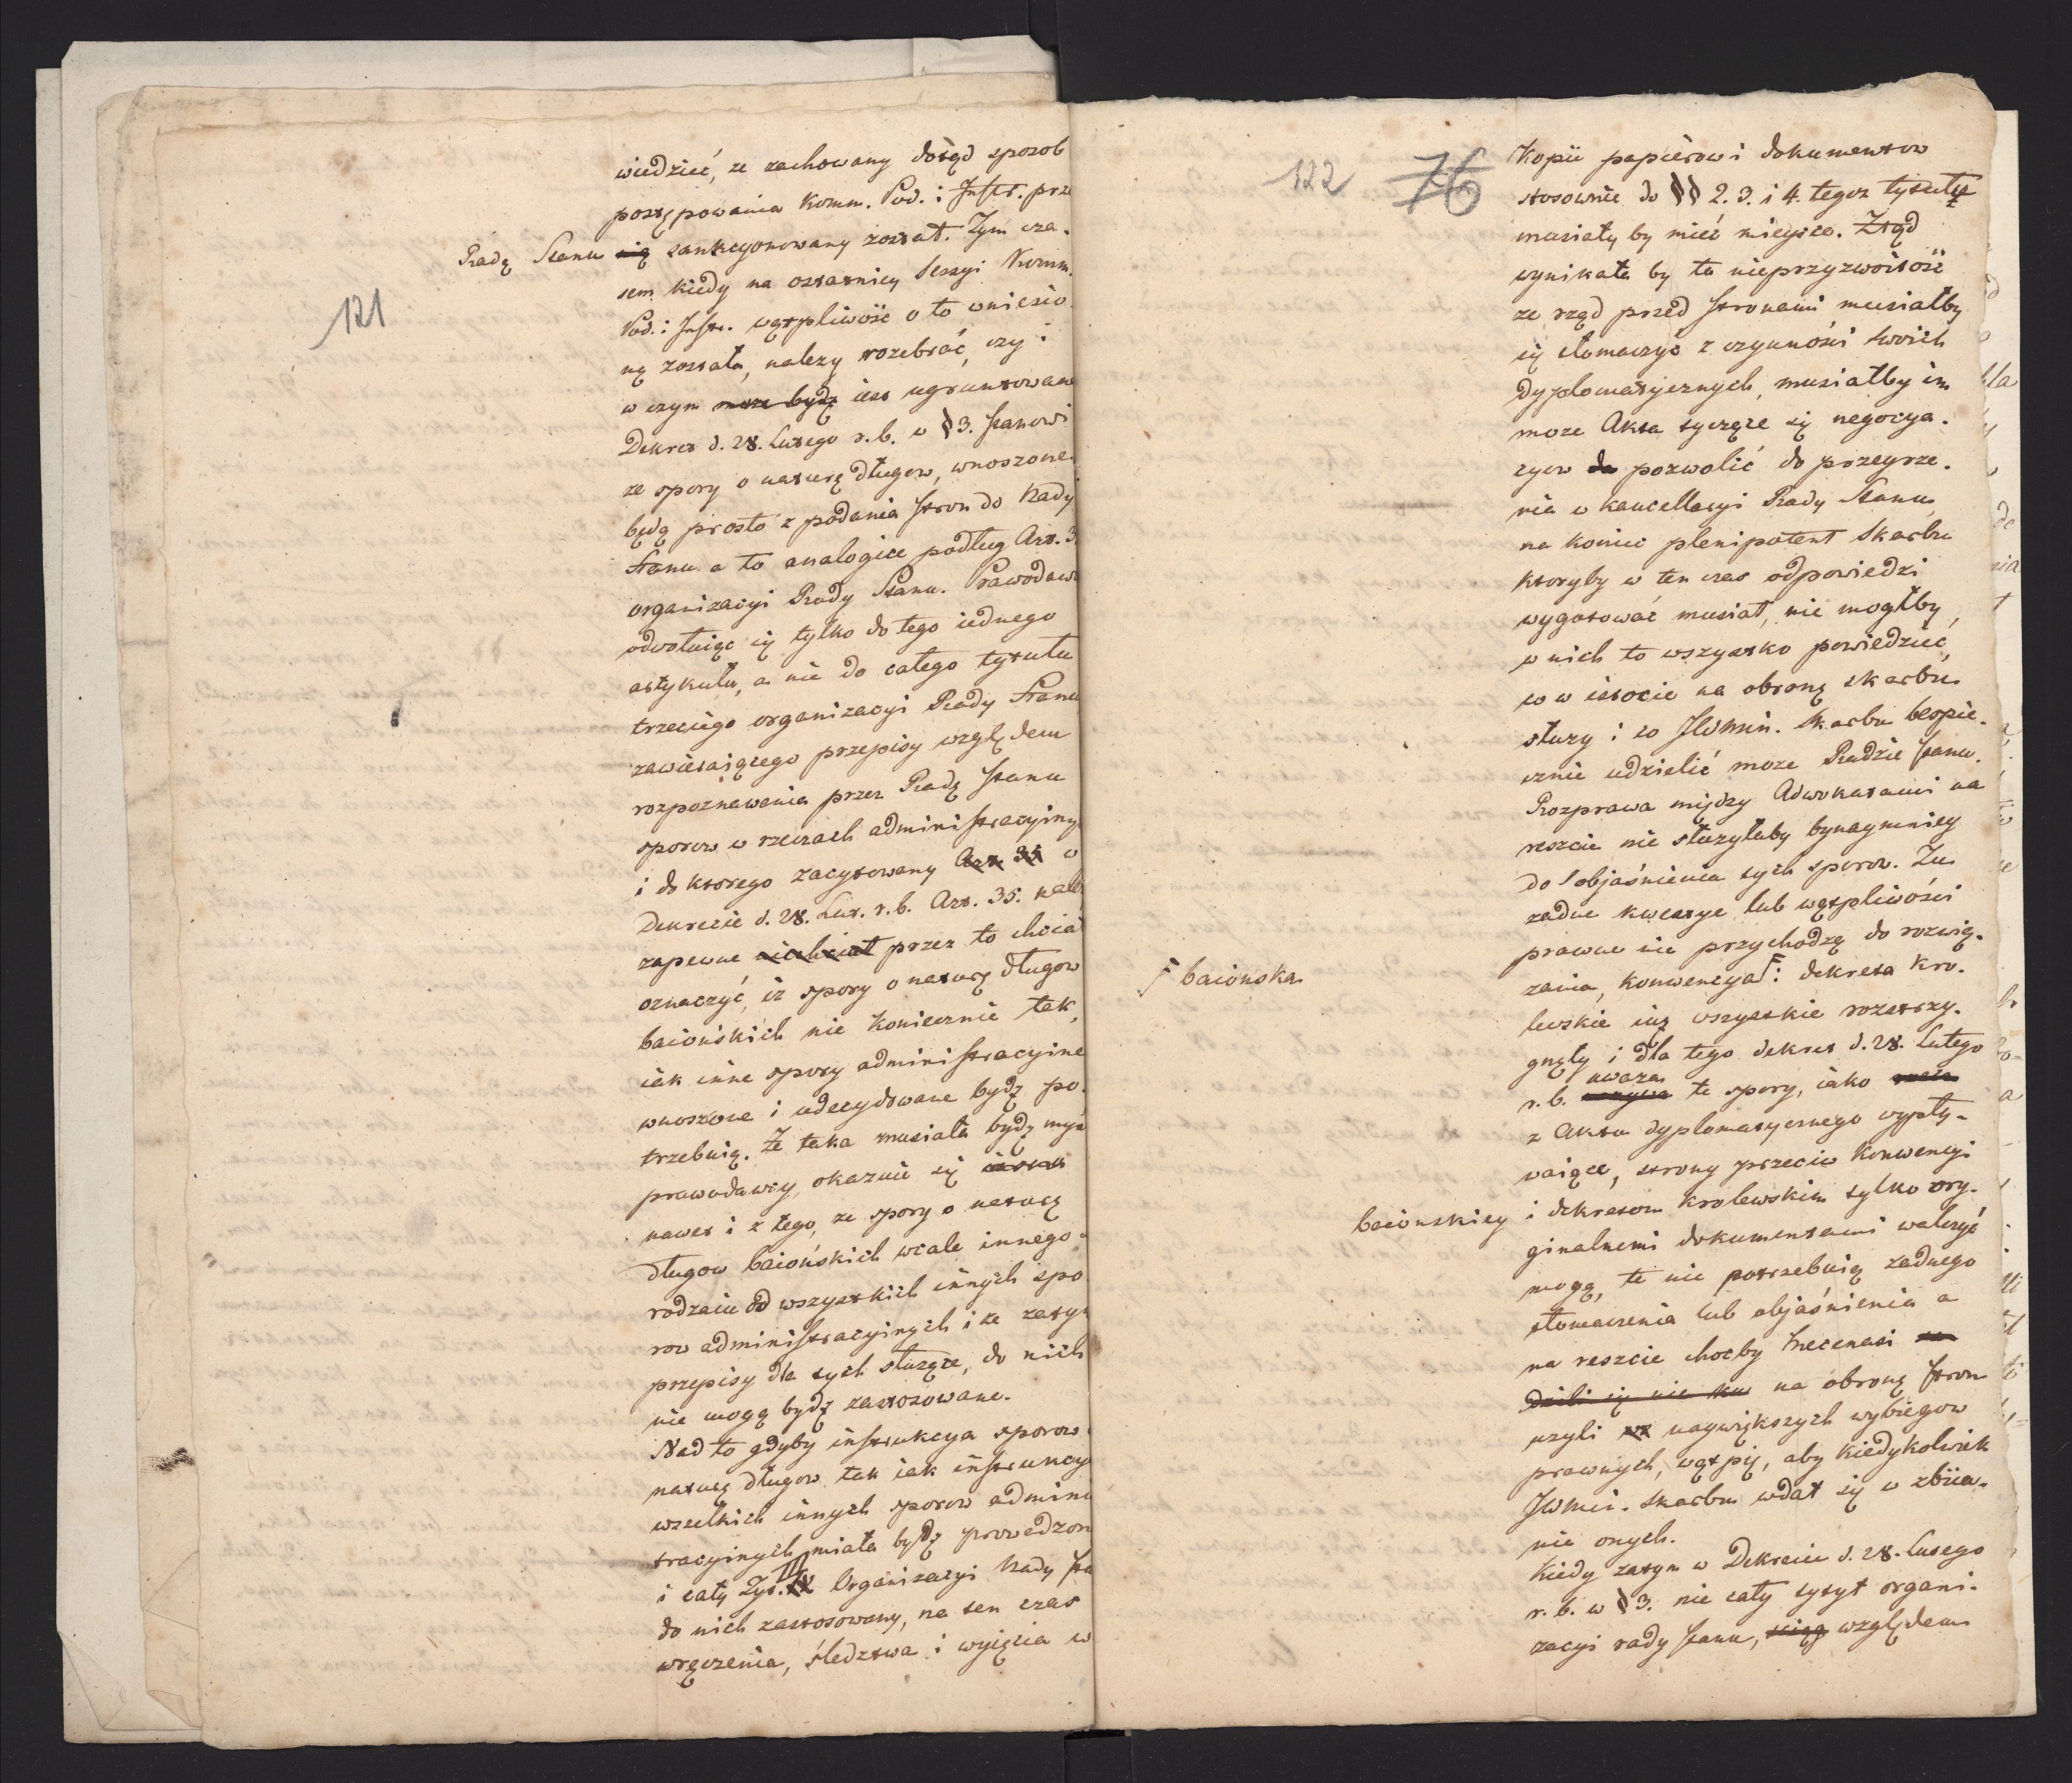 121
wiedzieć, ze zachowany dotąd sposob
postępowania Komm. Pod. i Instr. prze
Radę Stanu nią sankcyonowany został. Tym cza-
sem kiedy na ostatniey Sessyi Komm.
Pod. i Instr. wątpliwość o to wniesio
ną została, należy rozebrać, czy i
w czym może bydź iest ugruntowana
Dekret d. 28. Lutego r.b. w § 3. stanowi
że spory o naturę długow, wnoszone
będą prosto z podania stron do Rady
Stanu a to analogice podług Art. 3
organizacyi Rady Stanu. Prawodaw
odwołuiąc się tylko do tego iednego
artykułu, a nie do całego tytułu
trzeciego organizacyi Rady Stanu
zawieraiącego przepisy względem
rozpoznawania przez Radę Stanu
sporow w rzeczach administracyiny
i do ktorego zacytowany Art. 35 w
Dekrecie d. 28. Lut. r.b. Art. 35. nale
zapewne niechciał przez to chciał
oznaczyć, iż spory o naturę długow
baiońskich nie koniecznie tak,
iak inne spory administracyine
wnoszone i udecydowane bydź po-
trzebuią. Ze taka musiała bydź myśl
prawodawcy, okazuie się
nawet i z tego, ze spory o naturę
długow baiońskich wcale innego
rodzaiu od wszystkich innych spo
row administracyinych i ze zatym
przepisy dla tych służące, do nich
nie mogą bydź zastosowane.
Nad to gdyby instrukcya sporow
naturę długow tak iak instrukcy
wszelkich innych sporow admini
stracyinych miała bydź prowadzon
i cały Tyt. III Organizacyi Rady Sta
do nich zastosowany, na ten czas
wręczenia, śledztwa i wyięcia w
122 76
Kopii papierow i dokumentow
stosownie do §§ 2. 3. i 4. tegoz tytułu
musiały by mieć mieysce. Ztąd
wynikała by ta nieprzyzwoitość
ze rząd przed stronami musiałby
się tłomaczyć z czynności swoich
dyplomatycznych, musiałby im
moze Akta tyczące się negocya-
cyow do pozwolić do przeyrze-
nia w kancellaryi Rady Stanu,
na koniec plenipotent Skarbu
ktoryby w ten czas odpowiedzi
wygotować musiał, nie mogłby,
w nich to wszystko powiedzieć,
co w istocie na obronę skarbu
służy i co JWMin. Skarbu bespie-
cznie udzielić moze Radzie Stanu.
Rozprawa między Adwokatami na
reszcie nie służyłaby bynaymniey
do objaśnienia tych sporow. Tu
żadne kwestye lub wątpliwości
prawne nie przychodzą do rozwią-
zania, konwencya F i dekreta Kro-
F baiońska
lewskie iuż wszystkie rozstrzy-
gnęły i dla tego dekret d. 28. Lutego
uwaza
r.b. te spory, iako
z Aktu dyplomatycznego wypły-
waiące, strony przeciw konwencyi
baiońskiey i dekretom krolewskim tylko ory-
ginalnemi dokumentami walczyć
mogą, te nie potrzebuią żadnego
tłomaczenia lub objaśnienia a
na reszcie choćby Mecenasi
dzili się nie na obronę stron
użyli naywiększych wybiegow
prawnych, wątpię, aby kiedykolwiek
JWMin. Skarbu wdał się w zbiia-
nie onych.
Kiedy zatym w Dekrecie d. 28. Lutego
r. b. w § 3. nie cały tytuł organi-
zacyi rady stanu, względem